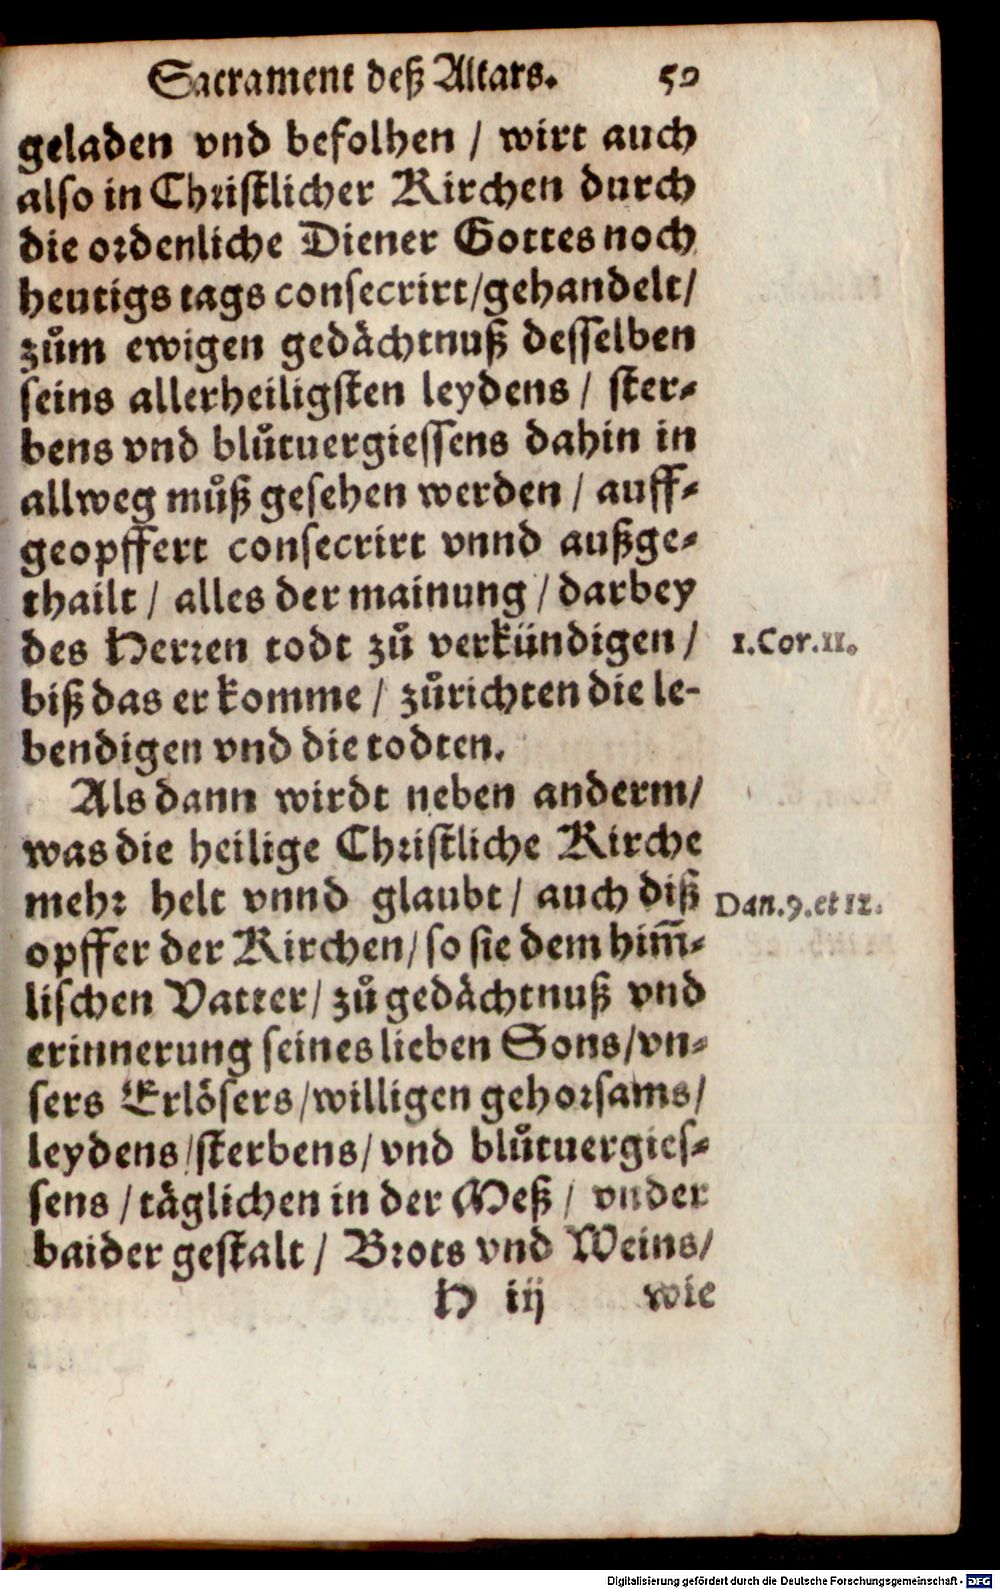 Sacrament deß Altars. 59
geladen vnd befolhen / wirt auch
also in Christlicher Kirchen durch
die ordenliche Diener Gottes noch
heutigs tags consecrirt/gehandelt/
zům ewigen gedächtnuß desselben
seins allerheiligsten leydens / ster-
bens vnd blůtuergiessens dahin in
allweg můß gesehen werden / auff-
geopffert consecrirt vnnd außge-
thailt / alles der mainung / darbey
des Herren todt zů verkündigen /
1.Cor.11.
biß das er komme / zůrichten die le-
bendigen vnd die todten.
Als dann wirdt neben anderm/
was die heilige Christliche Kirche
mehr helt vnnd glaubt / auch diß
Dan.9.et 12.
opffer der Kirchen/ so sie dem him̄-
lischen Vatter/ zů gedächtnuß vnd
erinnerung seines lieben Sons/vn-
sers Erlösers/willigen gehorsams/
leydens/sterbens/ vnd blůtuergies-
sens / täglichen in der Meß / vnder
baider gestalt / Brots vnd Weins/
H iij wie
Digitalisierung gefördert durch die Deutsche Forschungsgemeinschaft - DFG